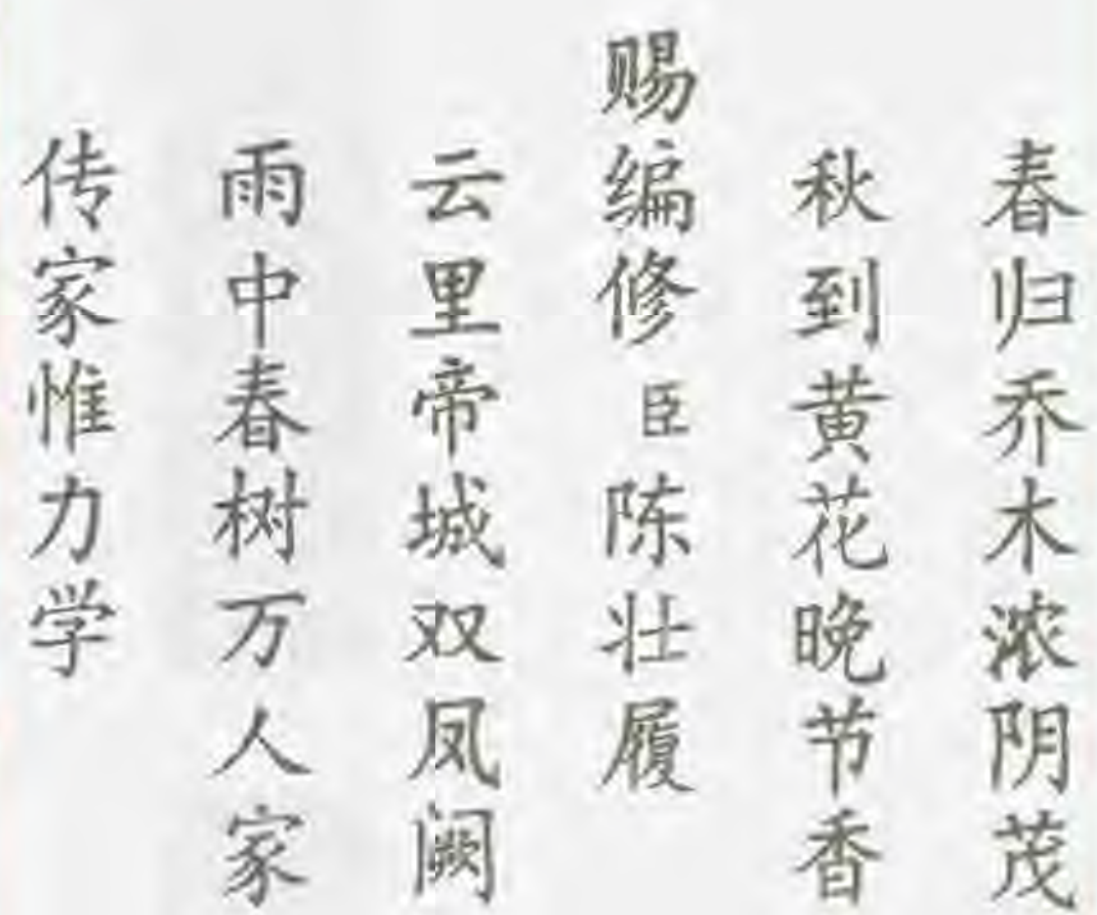 春归乔木浓阴茂
秋到黄花晚节香
赐编修臣陈壮履
云里帝城双凤阙
雨中春树万人家
传家惟力学